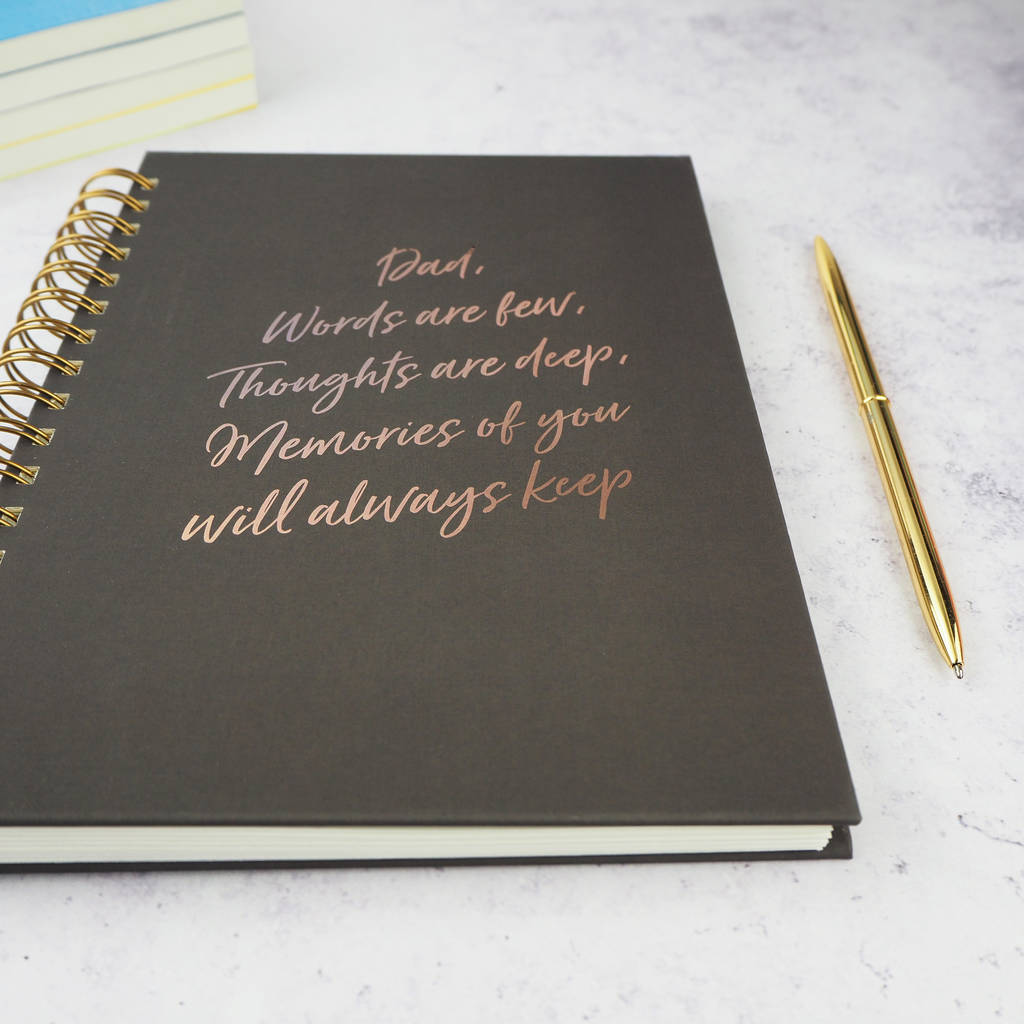 Dad,
Words are few,
Thoughts are deep,
Memories of you
will always keep